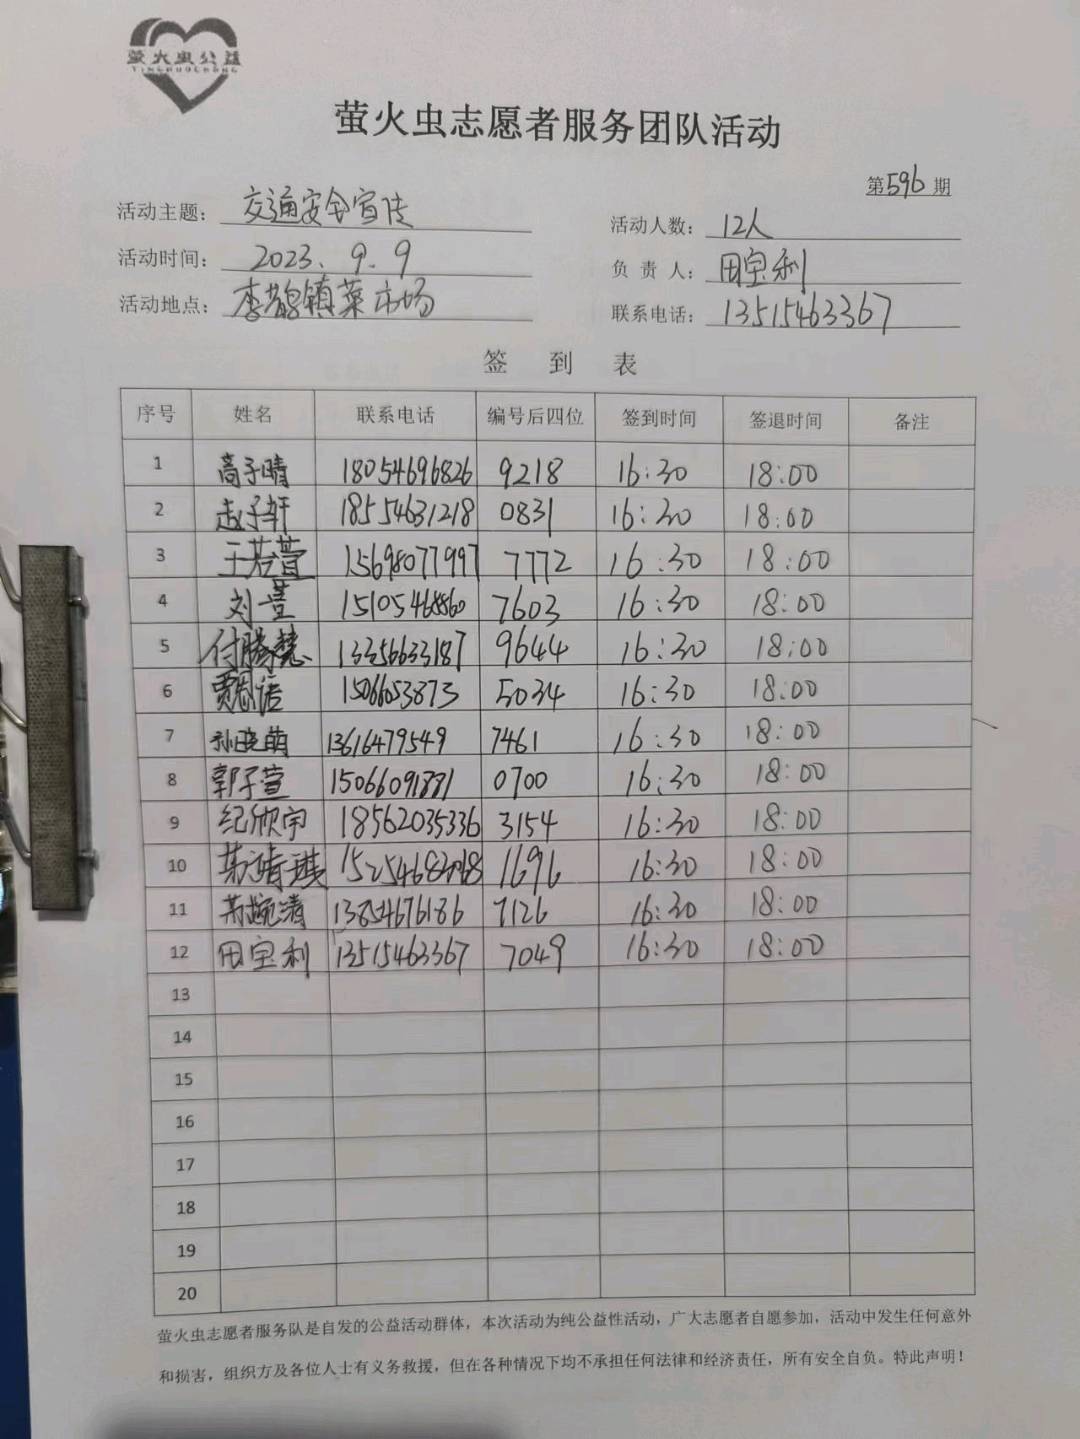 萤火虫公益
YINGHUOCHONG
萤火虫志愿者服务团队活动
第596期
活动主题：交通安全宣传
活动人数：12人
活动时间：2023.9.9
负责人：田宝利
活动地点：李鹊镇菜市场
联系电话：13515463367
签到表
序号 姓名 联系电话 编号后四位 签到时间 签退时间 备注
1 高子晴 18054696826 9218 16:30 18:00
2 赵子轩 18554631218 0831 16:30 18:00
3 王若萱 15698077997 7772 16:30 18:00
4 刘萱 15105468860 7603 16:30 18:00
5 付腾慧 13356633187 9644 16:30 18:00
6 贾恩语 15066053873 5034 16:30 18:00
7 孙晓萌 13616479549 7461 16:30 18:00
8 郭子萱 15066091881 0700 16:30 18:00
9 纪欣宇 18562035336 3154 16:30 18:00
10 1696 16:30 18:00
11 13854676186 7126 16:30 18:00
12 田宝利 13515463367 7049 16:30 18:00
13
14
15
16
17
18
19
20
萤火虫志愿者服务队是自发的公益活动群体，本次活动为纯公益性活动，广大志愿者自愿参加，活动中发生任何意外
和损害，组织方及各位人士有义务救援，但在各种情况下均不承担任何法律和经济责任，所有安全自负。特此声明！